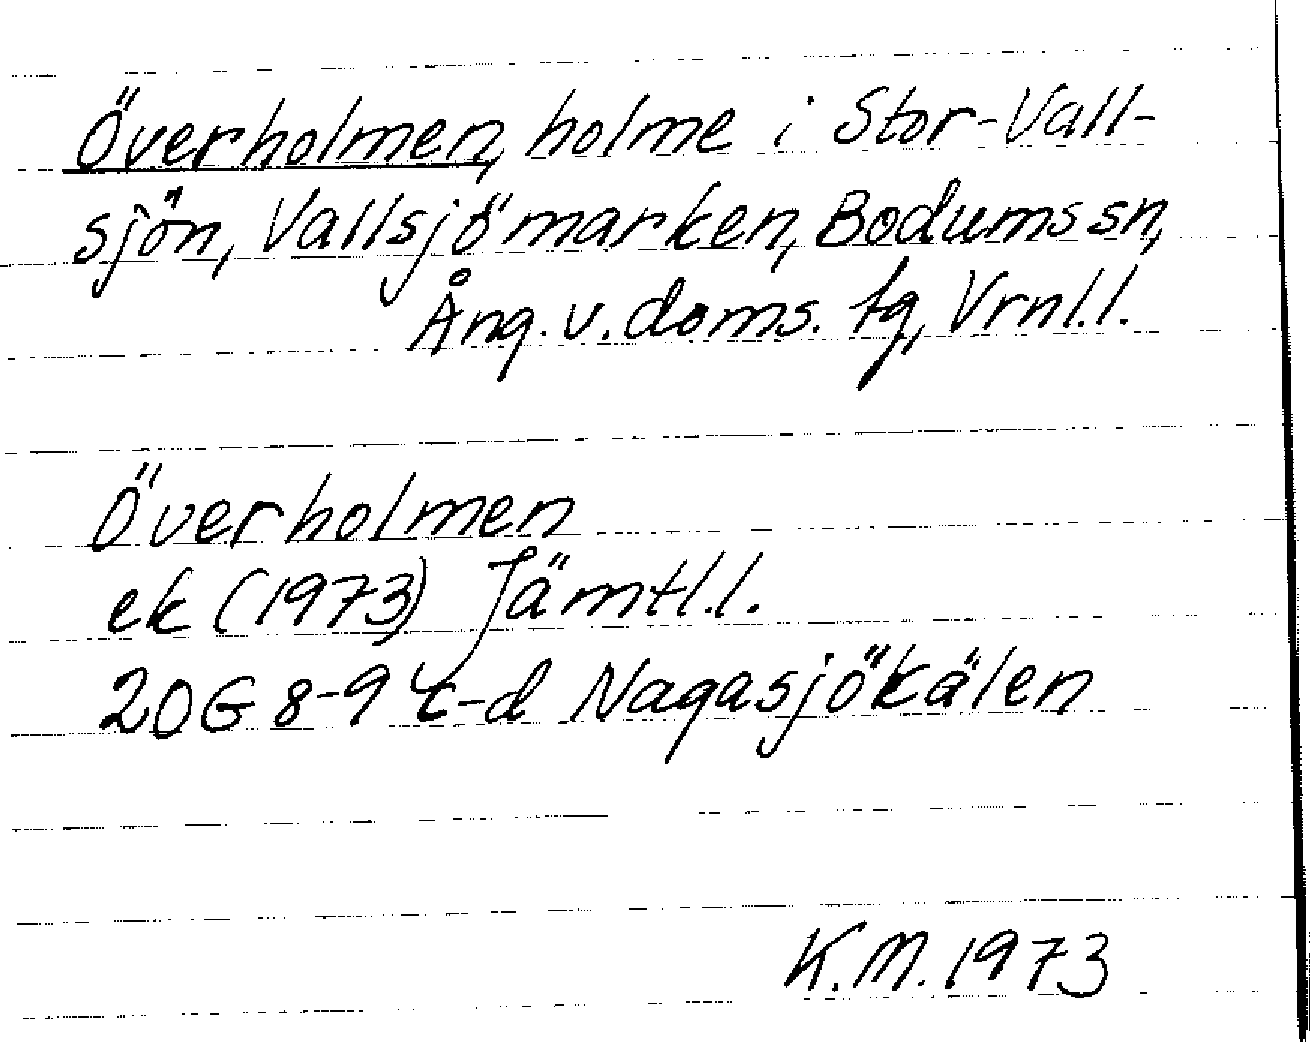 Överholmen, holme i Stor-Vall-
sjön, Vallsjömarken, Bodums sn,
Ång. v. doms. tg, Vrnl.l.
Överholmen
ek (1973) Jämtl.l.
20G 8-9 c-d Nagasjökälen
K.M. 1973